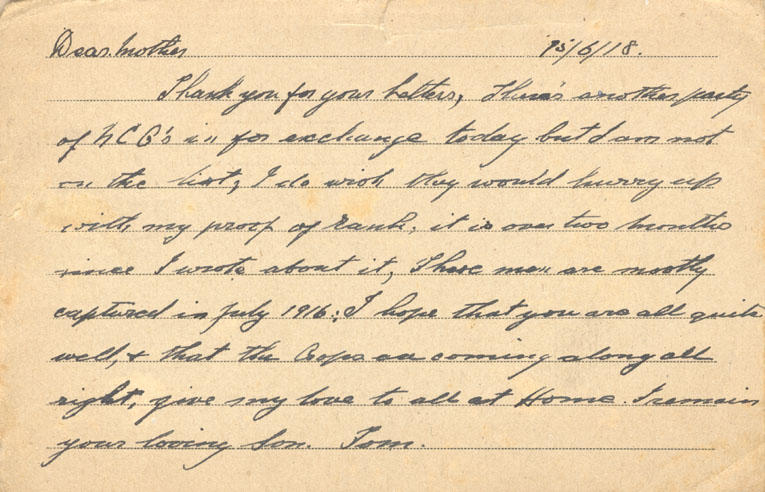 Dear Mother 15/6/18.
Thank you for your letters, There's another party
of N.C.O's in for exchange today but I am not
on the list, I do wish they would hurry up
with my proof of rank, it is over two months
since I wrote about it, These men are mostly
captured in July 1916; I hope that you are all quite
well, & that the Crops are coming along all
right, give my love to all at Home. I remain
your loving Son. Tom.